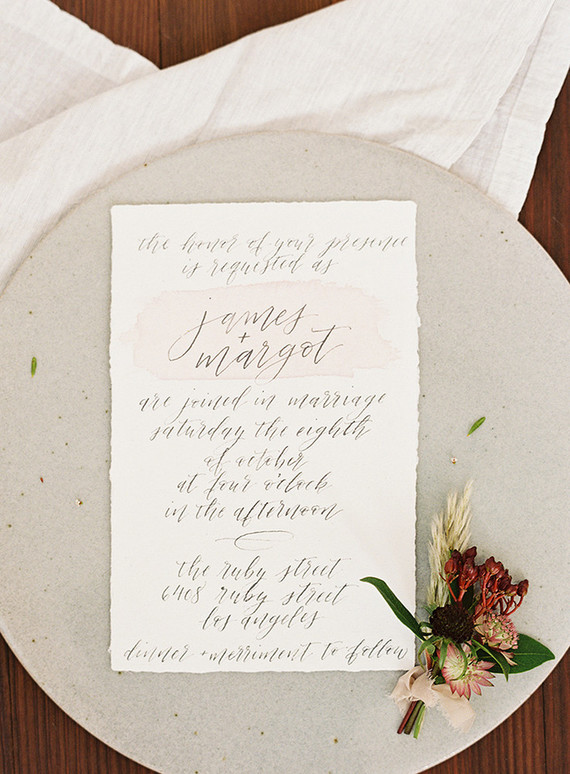 the honor of your presence
is requested as
james
+
margot
are joined in marriage
saturday the eighth
of october
at four o'clock
in the afternoon
the ruby street
6408 ruby street
los angeles
dinner + merriment to follow